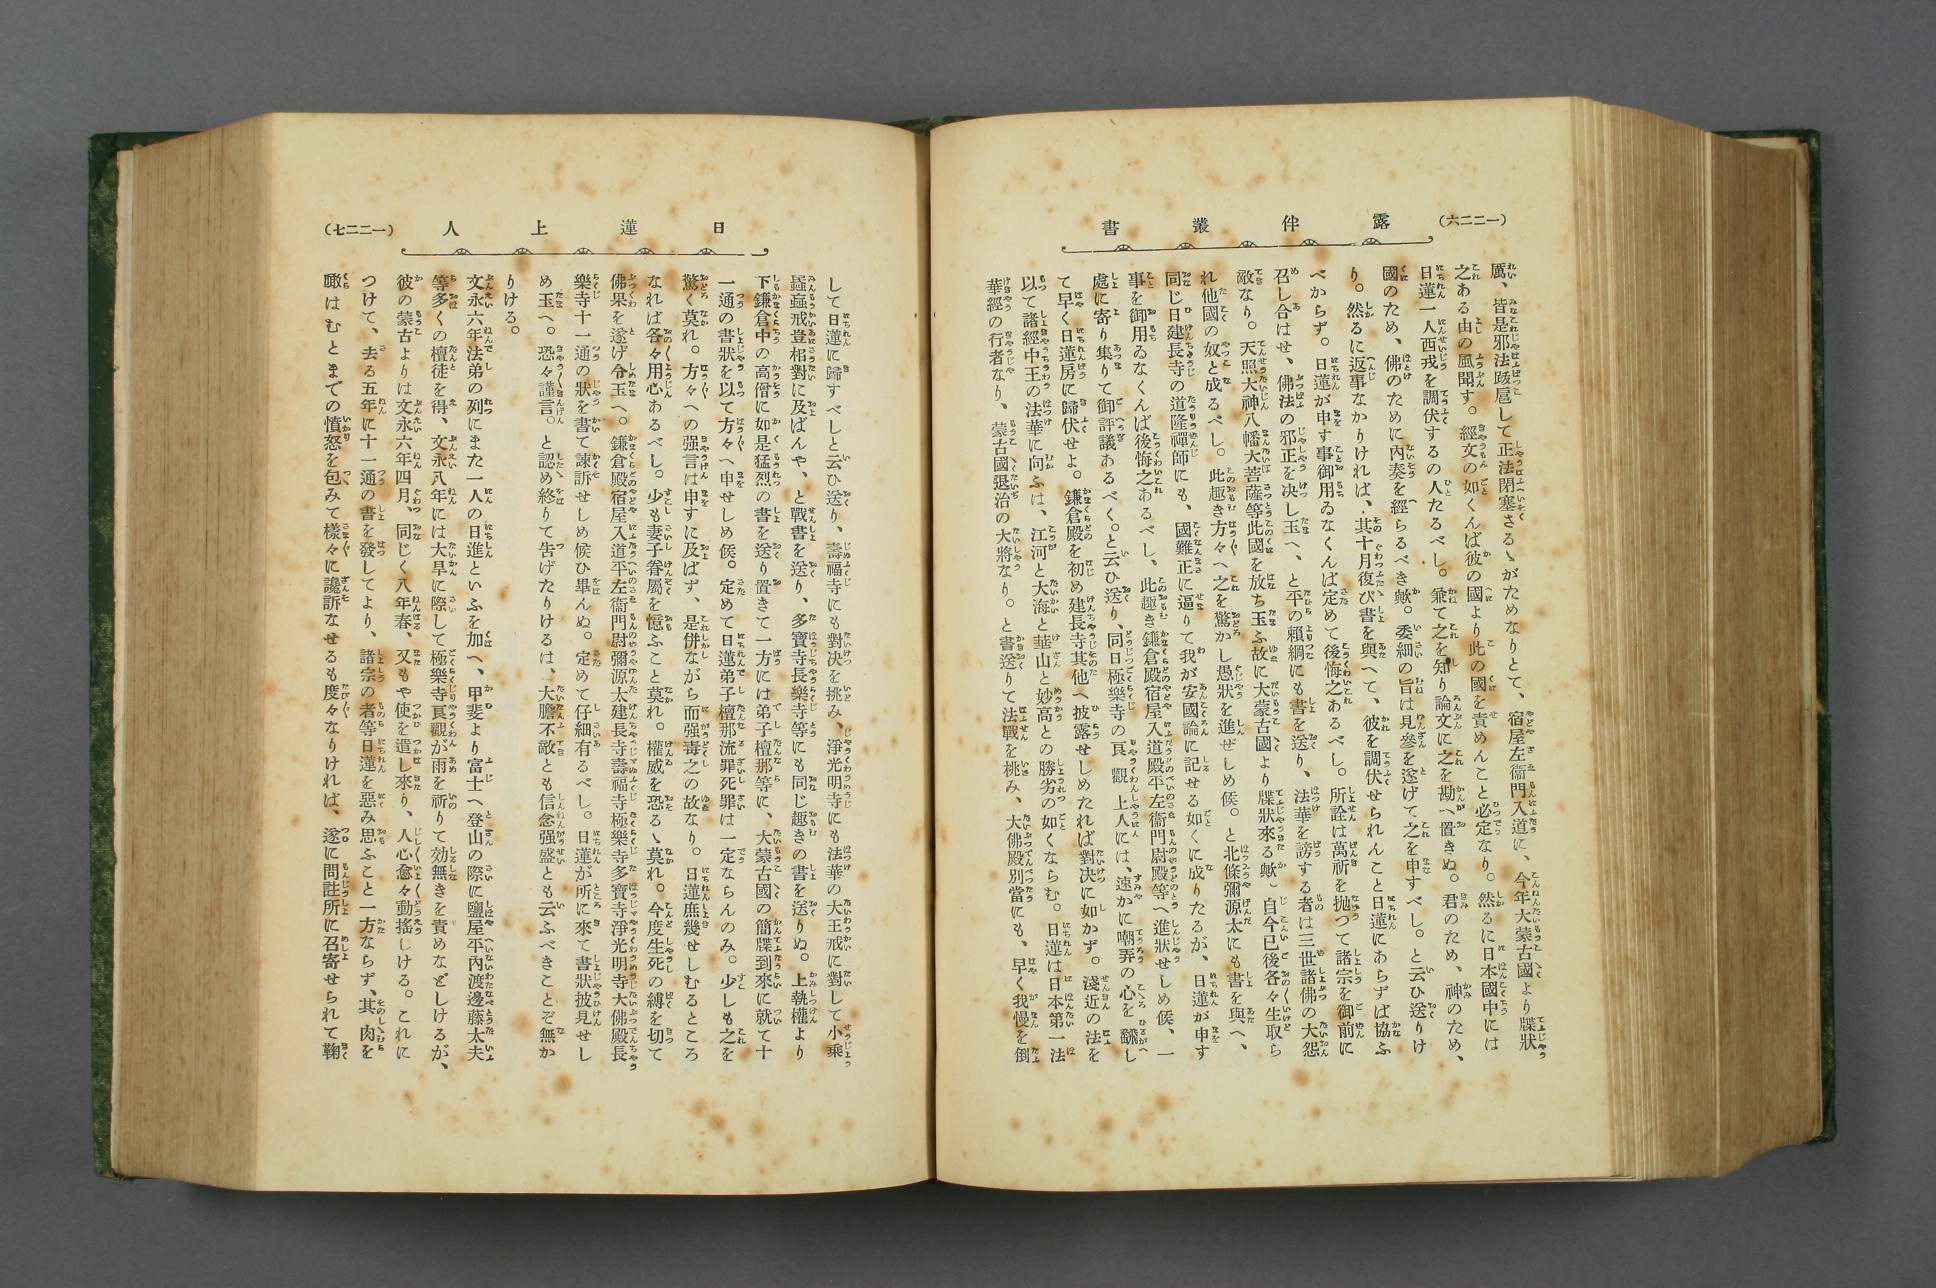 (一二二六)
露伴叢書
厲、皆是邪法跋扈して正法閉塞さるゝがためなりとて、宿屋左衞門入道に、今年大蒙古國より牒狀
之ある由の風聞す。經文の如くんば彼の國より此の國を責めんこと必定なり。然るに日本國中には
日蓮一人西戎を調伏するの人たるべし。兼て之を知り論文に之を勘へ置きぬ。君のため、神のため、
國のため、佛のために內奏を經らるべき歟。委細の旨は見參を遂げて之を申すべし。と云ひ送りけ
り。然るに返事なかりければ、其十月復び書を與へて、彼を調伏せられんこと日蓮にあらずば協ふ
べからず。日蓮が申す事御用ゐなくんば定めて後悔之あるべし。所詮は萬祈を抛つて諸宗を御前に
召し合はせ、佛法の邪正を决し玉へ、と平の賴綱にも書を送り、法華を謗する者は三世諸佛の大怨
敵なり。天照大神八幡大菩薩等此國を放ち玉ふ故に大蒙古國より牒狀來る歟。自今已後各々生取ら
れ他國の奴と成るべし。此趣き方々へ之を驚かし愚狀を進ぜしめ候。と北條彌源太にも書を與へ、
同じ日建長寺の道隆禪師にも、國難正に逼りて我が安國論に記せる如くに成りたるが、日蓮が申す
事を御用ゐなくんば後悔之あるべし、此趣き鎌倉殿宿屋入道殿平左衞門尉殿等へ進狀せしめ候、一
處に寄り集りて御評議あるべく。と云ひ送り、同日極樂寺の良觀上人には、速かに嘲弄の心を飜し
て早く日蓮房に歸伏せよ。鎌倉殿を初め建長寺其他へ披露せしめたれば對决に如かず。淺近の法を
以て諸經中王の法華に向ふは、江河と大海と華山と妙高との勝劣の如くならむ。日蓮は日本第一法
華經の行者なり、蒙古國退治の大將なり。と書送りて法戰を挑み、大佛殿別當にも、早く我慢を倒
(一二二七)
日蓮上人
して日蓮に歸すべしと云ひ送り、壽福寺にも對决を挑み、淨光明寺にも法華の大王戒に對して小乘
蟁蝱戒豈相對に及ばんや、と戰書を送り、多寶寺長樂寺等にも同じ趣きの書を送りぬ。上執權より
下鎌倉中の高僧に如是猛烈の書を送り置きて一方には弟子檀那等に、大蒙古國の簡牒到來に就て十
一通の書狀を以て方々へ申せしめ候。定めて日蓮弟子檀那流罪死罪は一定ならんのみ。少しも之を
驚く莫れ。方々への强言は申すに及ばず、是併ながら而强毒之の故なり。日蓮庶幾せしむるところ
なれば各々用心あるべし。少も妻子眷屬を憶ふこと莫れ。權威を恐るゝ莫れ。今度生死の縛を切て
佛果を遂げ令玉へ。鎌倉殿宿屋入道平左衞門尉彌源太建長寺壽福寺極樂寺多寶寺淨光明寺大佛殿長
樂寺十一通の狀を書て諫訴せしめ候ひ畢んぬ。定めて仔細有るべし。日蓮が所に來て書狀披見せし
め玉へ。恐々謹言。と認め終りて吿げたりけるは、大膽不敵とも信念强盛とも云ふべきことぞ無か
りける。
文永六年法弟の列にまた一人の日進といふを加へ、甲斐より富士へ登山の際に鹽屋平內渡邊藤太夫
等多くの檀徒を得、文永八年には大旱に際して極樂寺良觀が雨を祈りて効無きを責めなどしけるが、
彼の蒙古よりは文永六年四月、同じく八年春、又もや使を遣し來り、人心愈々動搖しける。これに
つけて、去る五年に十一通の書を發してより、諸宗の者等日蓮を惡み思ふこと一方ならず、其肉を
噉はむとまでの憤怒を包みて樣々に讒訴なせるも度々なりければ、遂に問註所に召寄せられて鞠